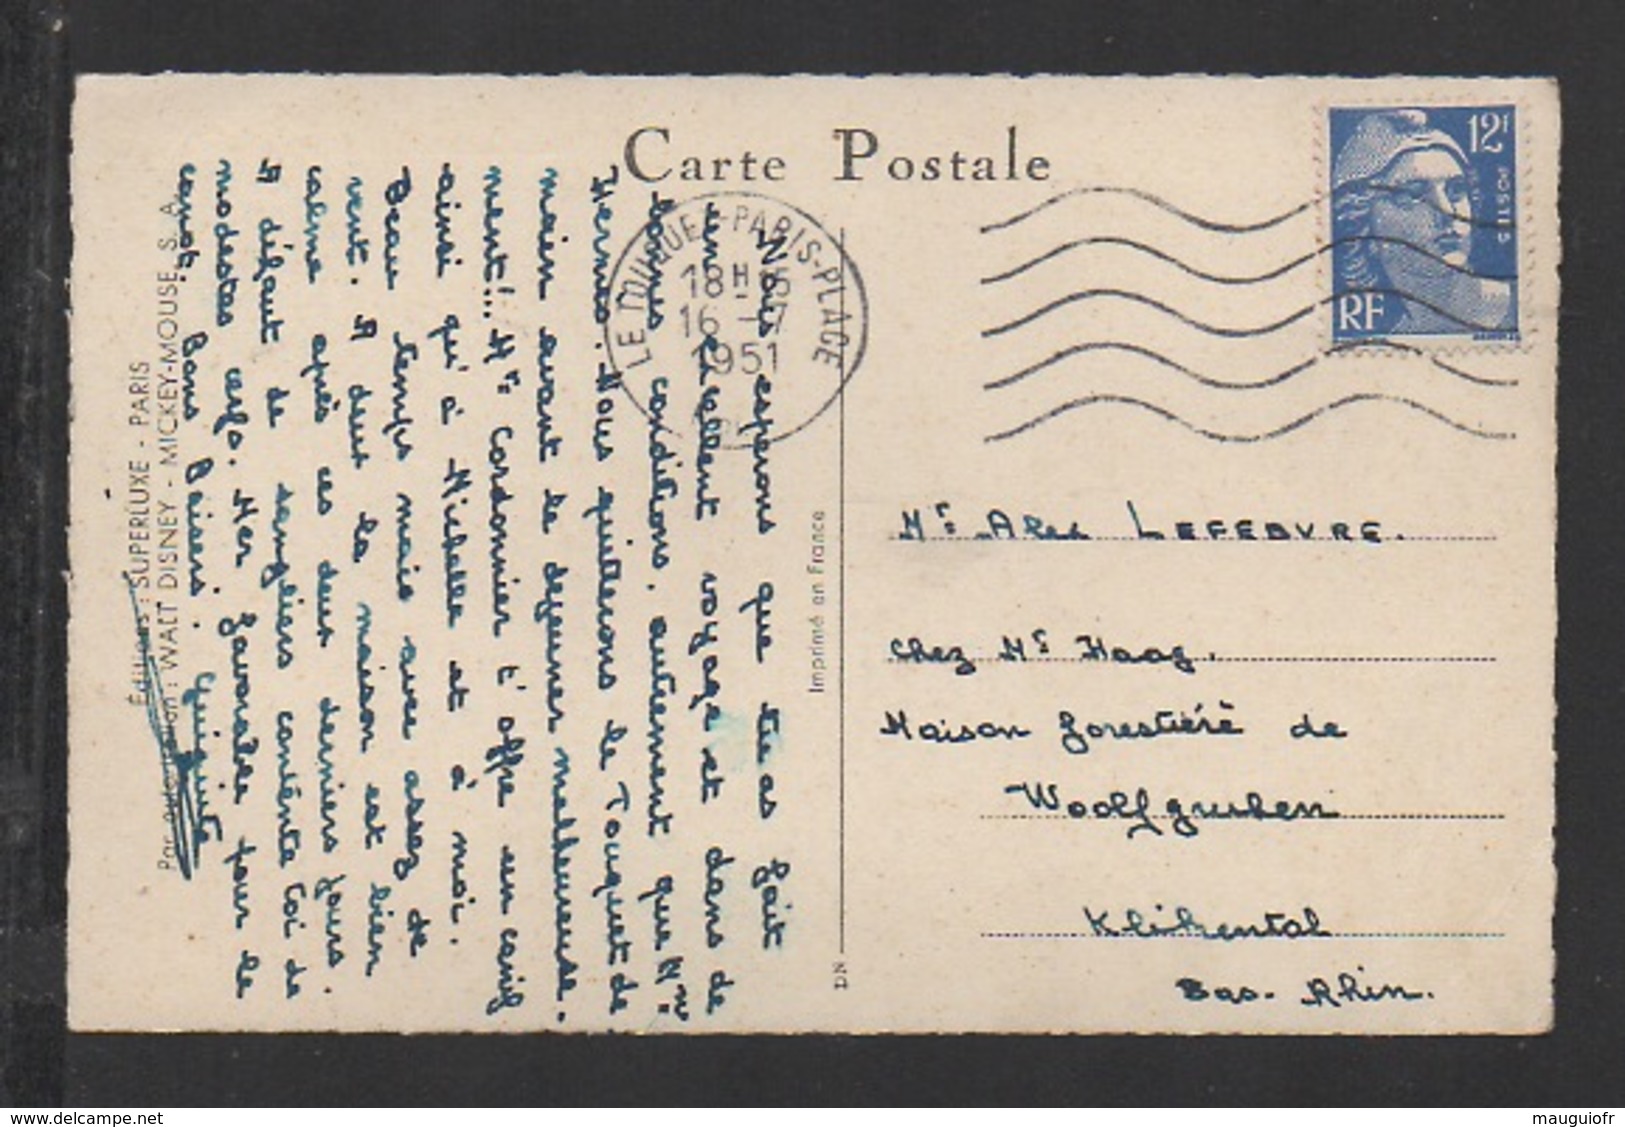 Carte Postale
12F
POSTES
RF
LE TOUQUET-PARIS-PLAGE
18H 15
16-7
1951
Nous espérons que tu as fait
un excellent voyage et dans de
bonnes conditions, autrement que Mme
Hermes. Nous quittons le Touquet de
main avant le dejeuner malheureuse.
ment!.. Mme Cordonnier t'offre un canif
ainsi qu'à Michelle et à moi.
Beau temps mais avec assez de
vent. A deux la maison est bien
calme après ces deux derniers jours.
A défaut de sangliers contente toi de
modestes cerfs. Mer favorable pour le
canot.
Bons Baisers. Guiguite
Éditions : SUPERLUXE - PARIS
Par autorisation : WALT DISNEY - MICKEY-MOUSE S. A.
Imprimé en France
DN
Mr Alex LEFEBVRE.
Chez Mr Haag.
Maison forestière de
Woolfgruben
Klikental
Bas-Rhin.
www.delcampe.net
mauguiofr